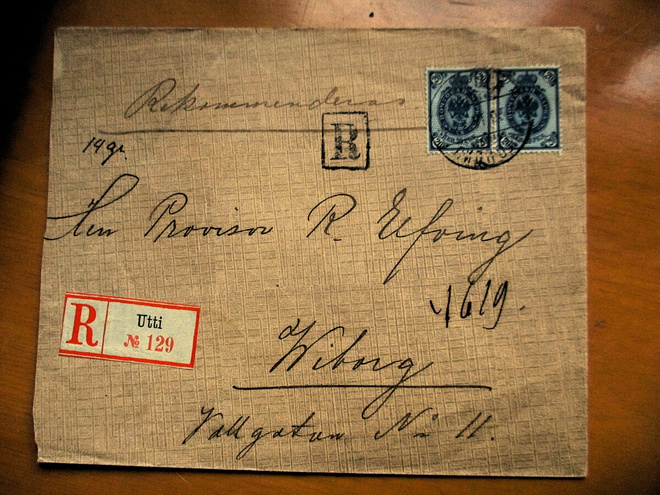 Rekommenderas.
R
19 gr.
Herr Provisor R. Elfving
1619.
R
Utti
№ 129
Wiborg
Vallgatan No 11.